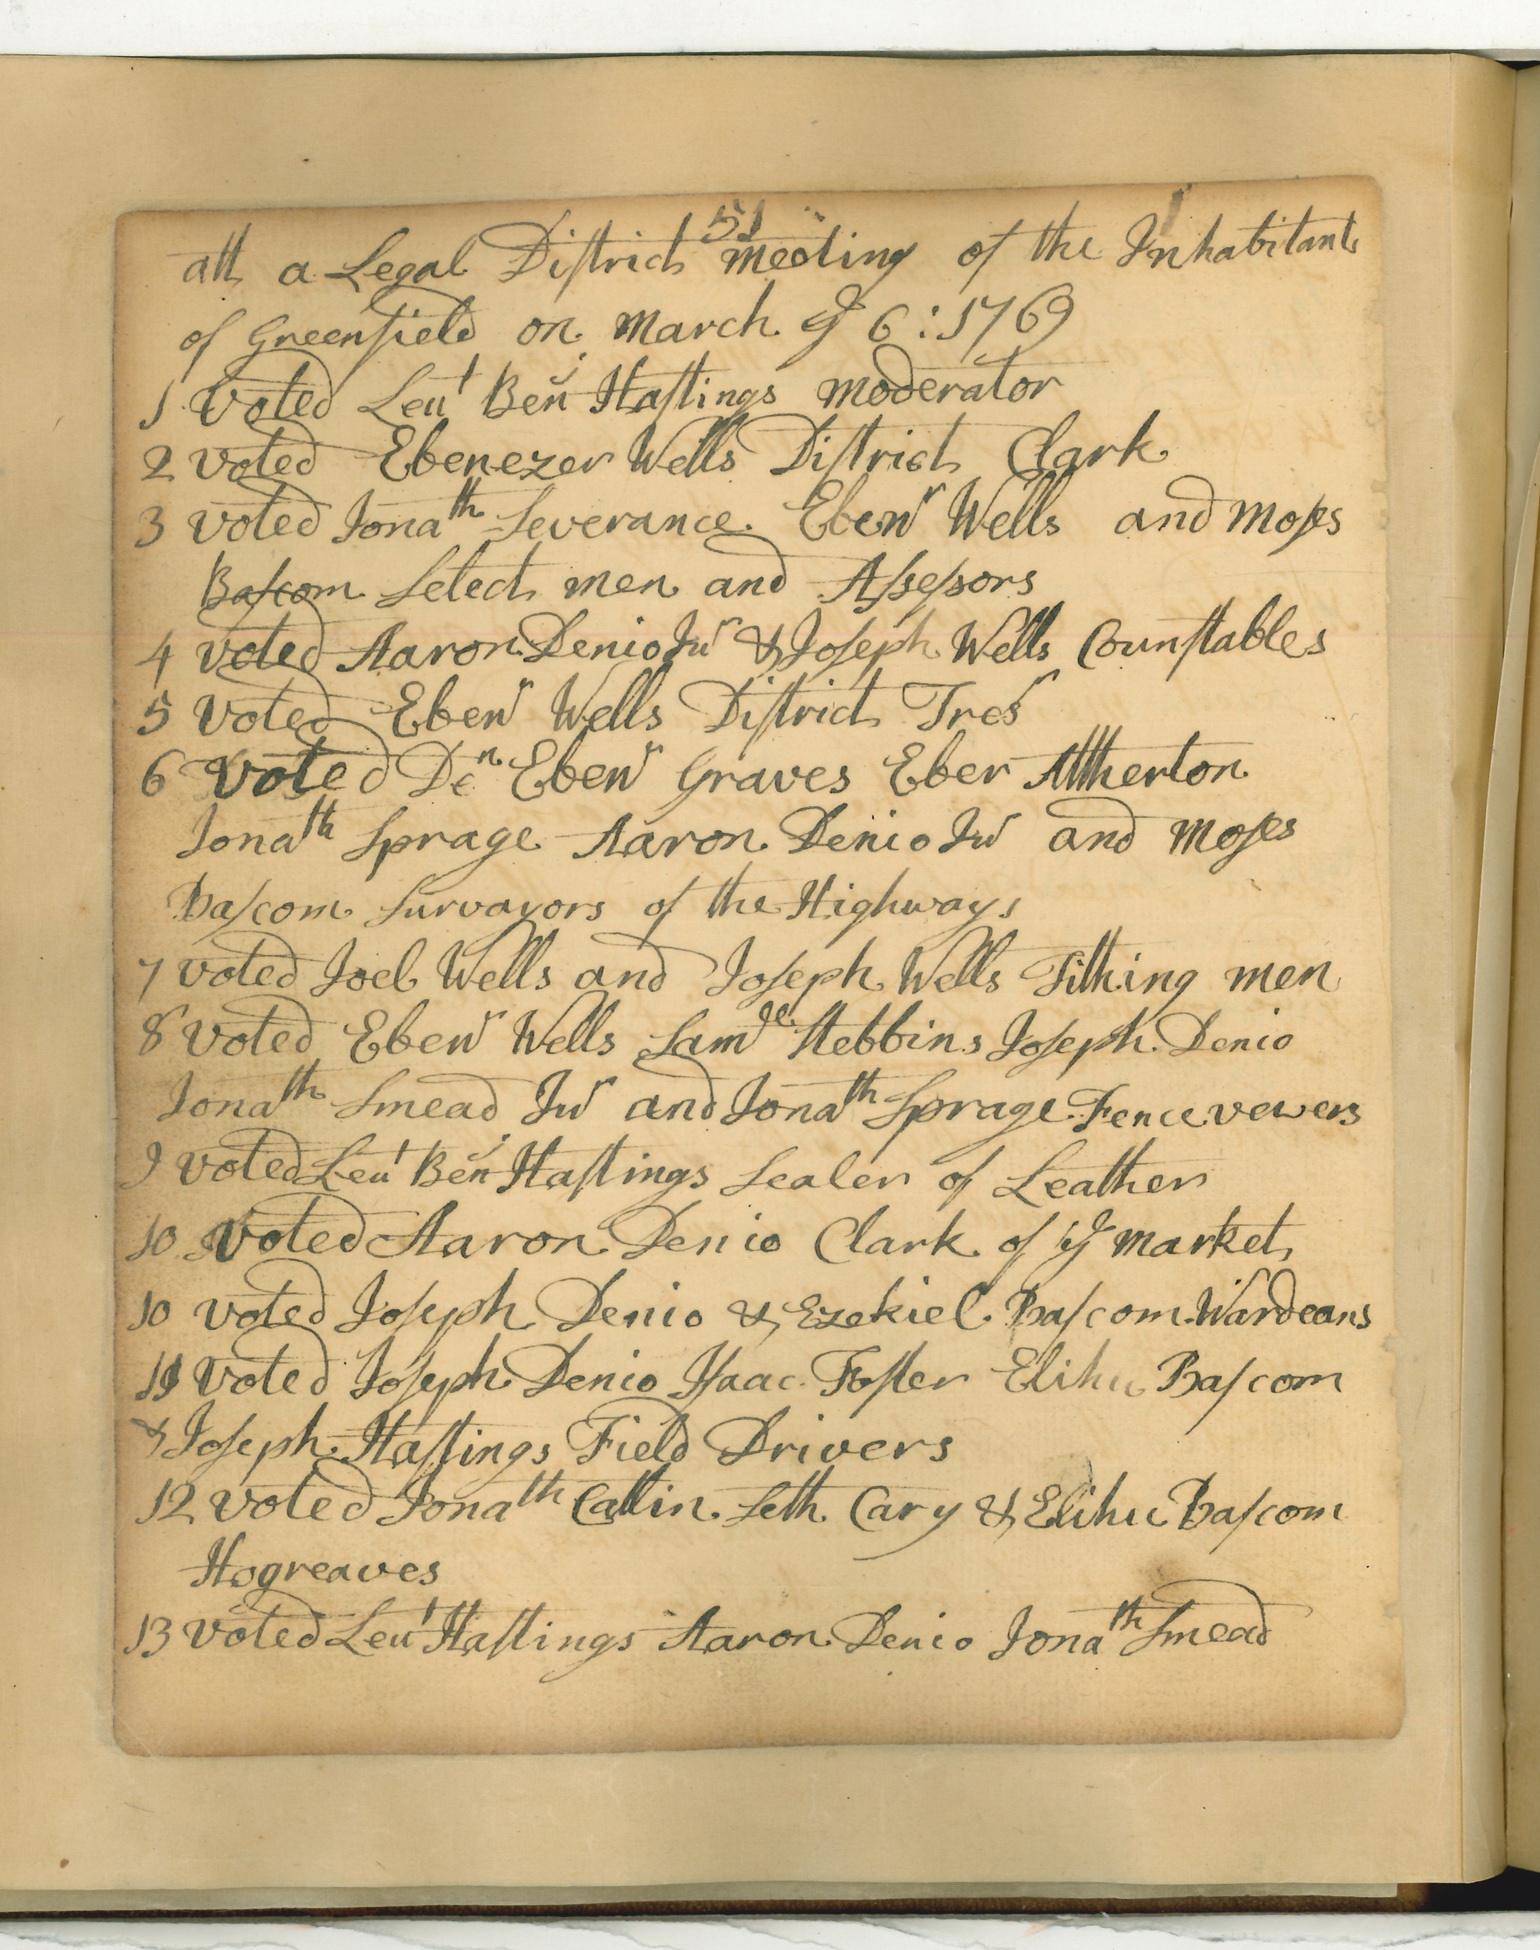 51
att a Legal District meeting of the Inhabitants
of Greenfield on march ye 6 : 1769
1 Voted Leut Benj Hastings moderator
2 voted Ebenezer Wells District Clark
3 voted Jonath Severance Ebenr Wells and Moses
Bascom Select men and Assessors
4 voted Aaron Denio Jur & Joseph Wells Counstables
5 Voted Ebenr Wells District Tresr
6 Voted Den Ebenr Graves Eber Attherton
Jonath Sprage Aaron Denio Jur and Moses
Bascom Survayors of the Highways
7 voted Joel Wells and Joseph Wells Tithing men
8 Voted Ebenr Wells Samll Stebbins Joseph Denio
Jonath Smead Jur and Jonath Sprage Fence vewers
9 voted Leut Benj Hastings Sealer of Leather
10 Voted Aaron Denio Clark of ye market
10 voted Joseph Denio & Ezekiel Bascom Wardeans
11 Voted Joseph Denio Isaac Foster Elihu Bascom
& Joseph Hastings Field Drivers
12 voted Jonath Catlin Seth Cary & Elihu Bascom
Hogreaves
13 voted Leut Hastings Aaron Denio Jonath Smead